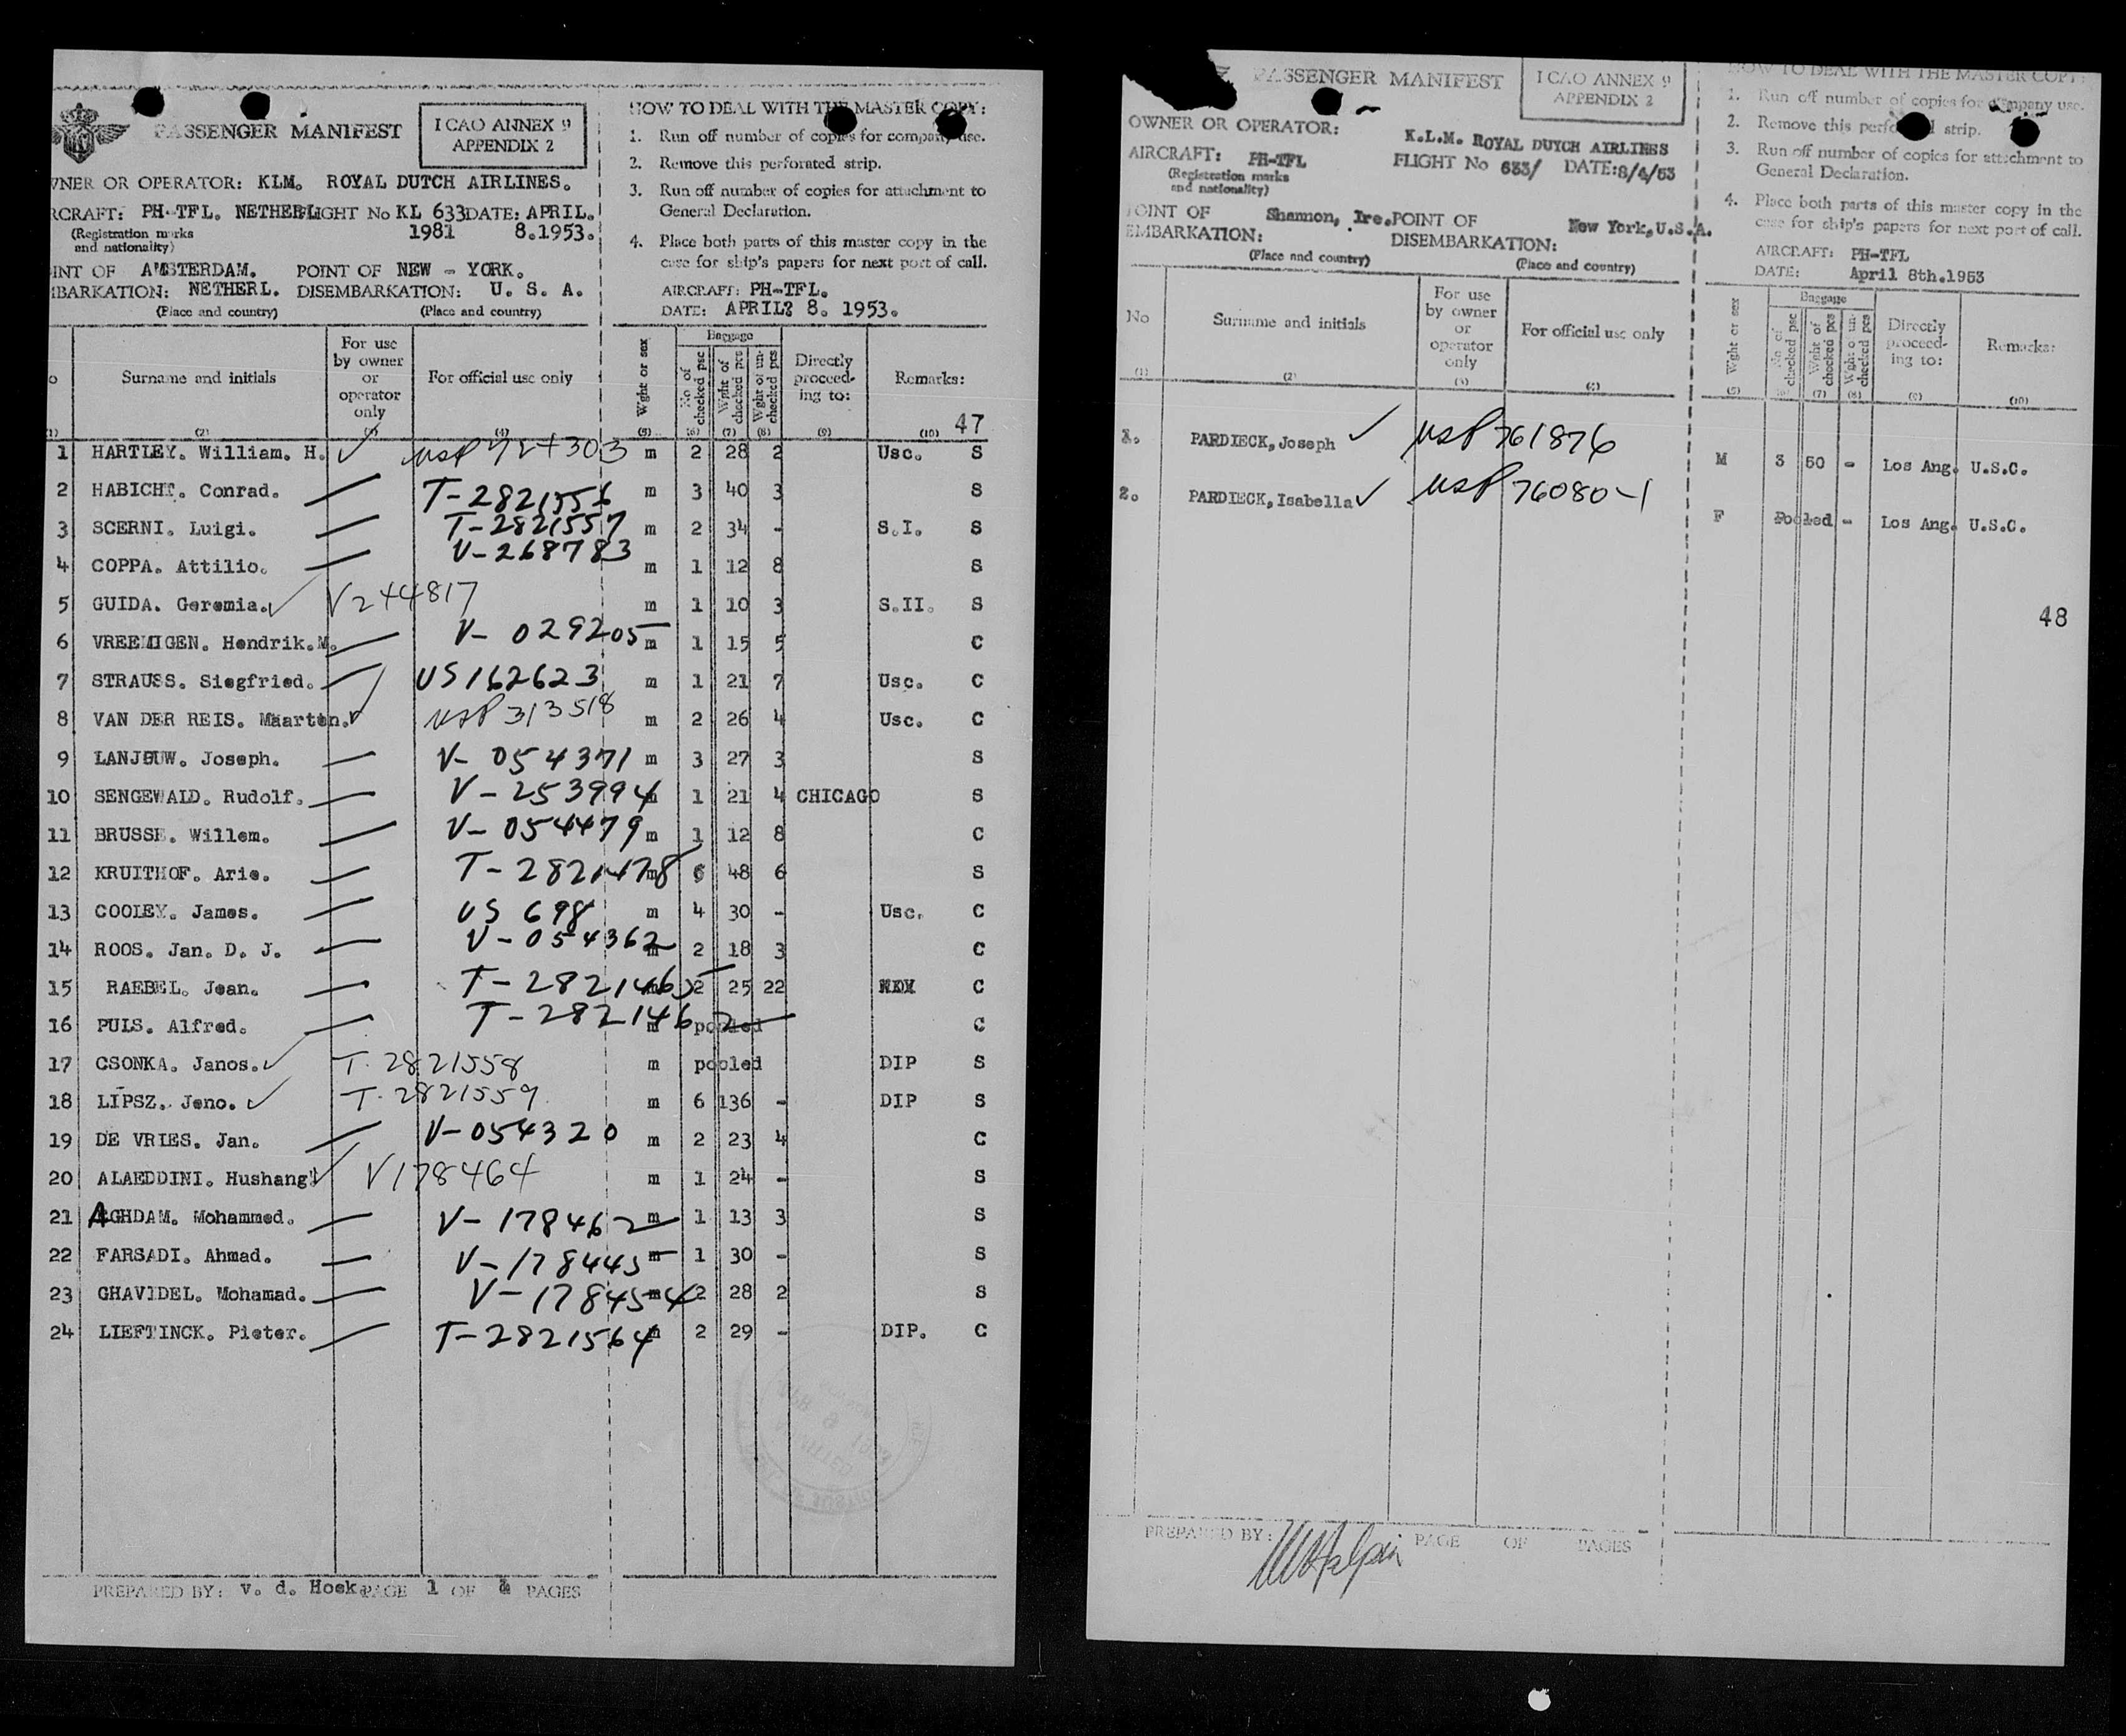 PASSENGER MANIFEST
I CAO ANNEX 9
APPENDIX 2
HOW TO DEAL WITH THE MASTER COPY:
1. Run off number of copies for company use.
2. Remove this perforated strip.
3. Run off number of copies for attachment to
General Declaration.
4. Place both parts of this master copy in the
case for ship's papers for next port of call.
WNER OR OPERATOR: KLM. ROYAL DUTCH AIRLINES.
RCRAFT: PH-TFL. NETHERL. FLIGHT No KL 633 DATE: APRIL.
(Registration marks
and nationality)
1981 8.1953.
INT OF AMSTERDAM. POINT OF NEW - YORK.
MBARKATION: NETHERL. DISEMBARKATION: U. S. A.
(Place and country) (Place and country)
AIRCRAFT: PH-TFL.
DATE: APRIL 8. 1953.
o Surname and initials For use by owner or operator only For official use only Wght or sex Baggage No of checked psc Wght of checked pcs Wght of un-checked pcs Directly proceed-ing to: Remarks:
(1) (2) (3) (4) (5) (6) (7) (8) (9) (10) 47
1 HARTLEY. William. H. usP 724303 m 2 28 2 Usc. S
2 HABICHT. Conrad. T-2821556 m 3 40 3 S
3 SCERNI. Luigi. T-2821557 m 2 34 - S.I. S
4 COPPA. Attilio. V-268783 m 1 12 8 S
5 GUIDA. Geremia. V244817 m 1 10 3 S.II. S
6 VREEMIGEN. Hendrik.M. V-029205 m 1 15 5 C
7 STRAUSS. Siegfried. US 162623 m 1 21 7 Usc. C
8 VAN DER REIS. Maarten. usP 313518 m 2 26 4 Usc. C
9 LANJOUW. Joseph. V-054371 m 3 27 3 S
10 SENGEWALD. Rudolf. V-253994 m 1 21 4 CHICAGO S
11 BRUSSE. Willem. V-054479 m 1 12 8 C
12 KRUITHOF. Arie. T-2821478 m 6 48 6 S
13 COOLEY. James. US 698 m 4 30 - Usc. C
14 ROOS. Jan. D. J. V-054362 m 2 18 3 C
15 RAEBEL. Jean. T-2821465 m 2 25 22 C
16 PULS. Alfred. T-2821462 m pooled C
17 CSONKA. Janos. T.2821558 m pooled DIP S
18 LIPSZ. Jeno. T.2821559 m 6 136 - DIP S
19 DE VRIES. Jan. V-054320 m 2 23 4 C
20 ALAEDDINI. Hushang V178464 m 1 24 - S
21 AGHDAM. Mohammed. V-178462 m 1 13 3 S
22 FARSADI. Ahmad. V-178445 m 1 30 - S
23 GHAVIDEL. Mohamad. V-178454 m 2 28 2 S
24 LIEFTINCK. Pieter. T-2821564 m 2 29 - DIP. C
PREPARED BY: v. d. Hoek. PAGE 1 OF PAGES
PASSENGER MANIFEST
I CAO ANNEX 9
APPENDIX 2
HOW TO DEAL WITH THE MASTER COPY:
1. Run off number of copies for company use.
2. Remove this perforated strip.
3. Run off number of copies for attachment to
General Declaration.
4. Place both parts of this master copy in the
case for ship's papers for next port of call.
OWNER OR OPERATOR: K.L.M. ROYAL DUTCH AIRLINES
AIRCRAFT: PH-TFL FLIGHT No 633/ DATE:8/4/53
(Registration marks
and nationality)
POINT OF Shannon, Ire. POINT OF New York,U.S.A.
EMBARKATION: DISEMBARKATION:
(Place and country) (Place and country)
AIRCRAFT: PH-TFL
DATE: April 8th.1953
No Surname and initials For use by owner or operator only For official use only Wght or sex Baggage No of checked psc Wght of checked pcs Wght of un-checked pcs Directly proceed-ing to: Remarks:
(1) (2) (3) (4) (5) (6) (7) (8) (9) (10)
1. PARDIECK,Joseph usP 761876 M 3 50 - Los Ang. U.S.C.
2. PARDIECK,Isabella usP 76080-1 F Pooled - Los Ang. U.S.C.
48
PREPARED BY: PAGE OF PAGES